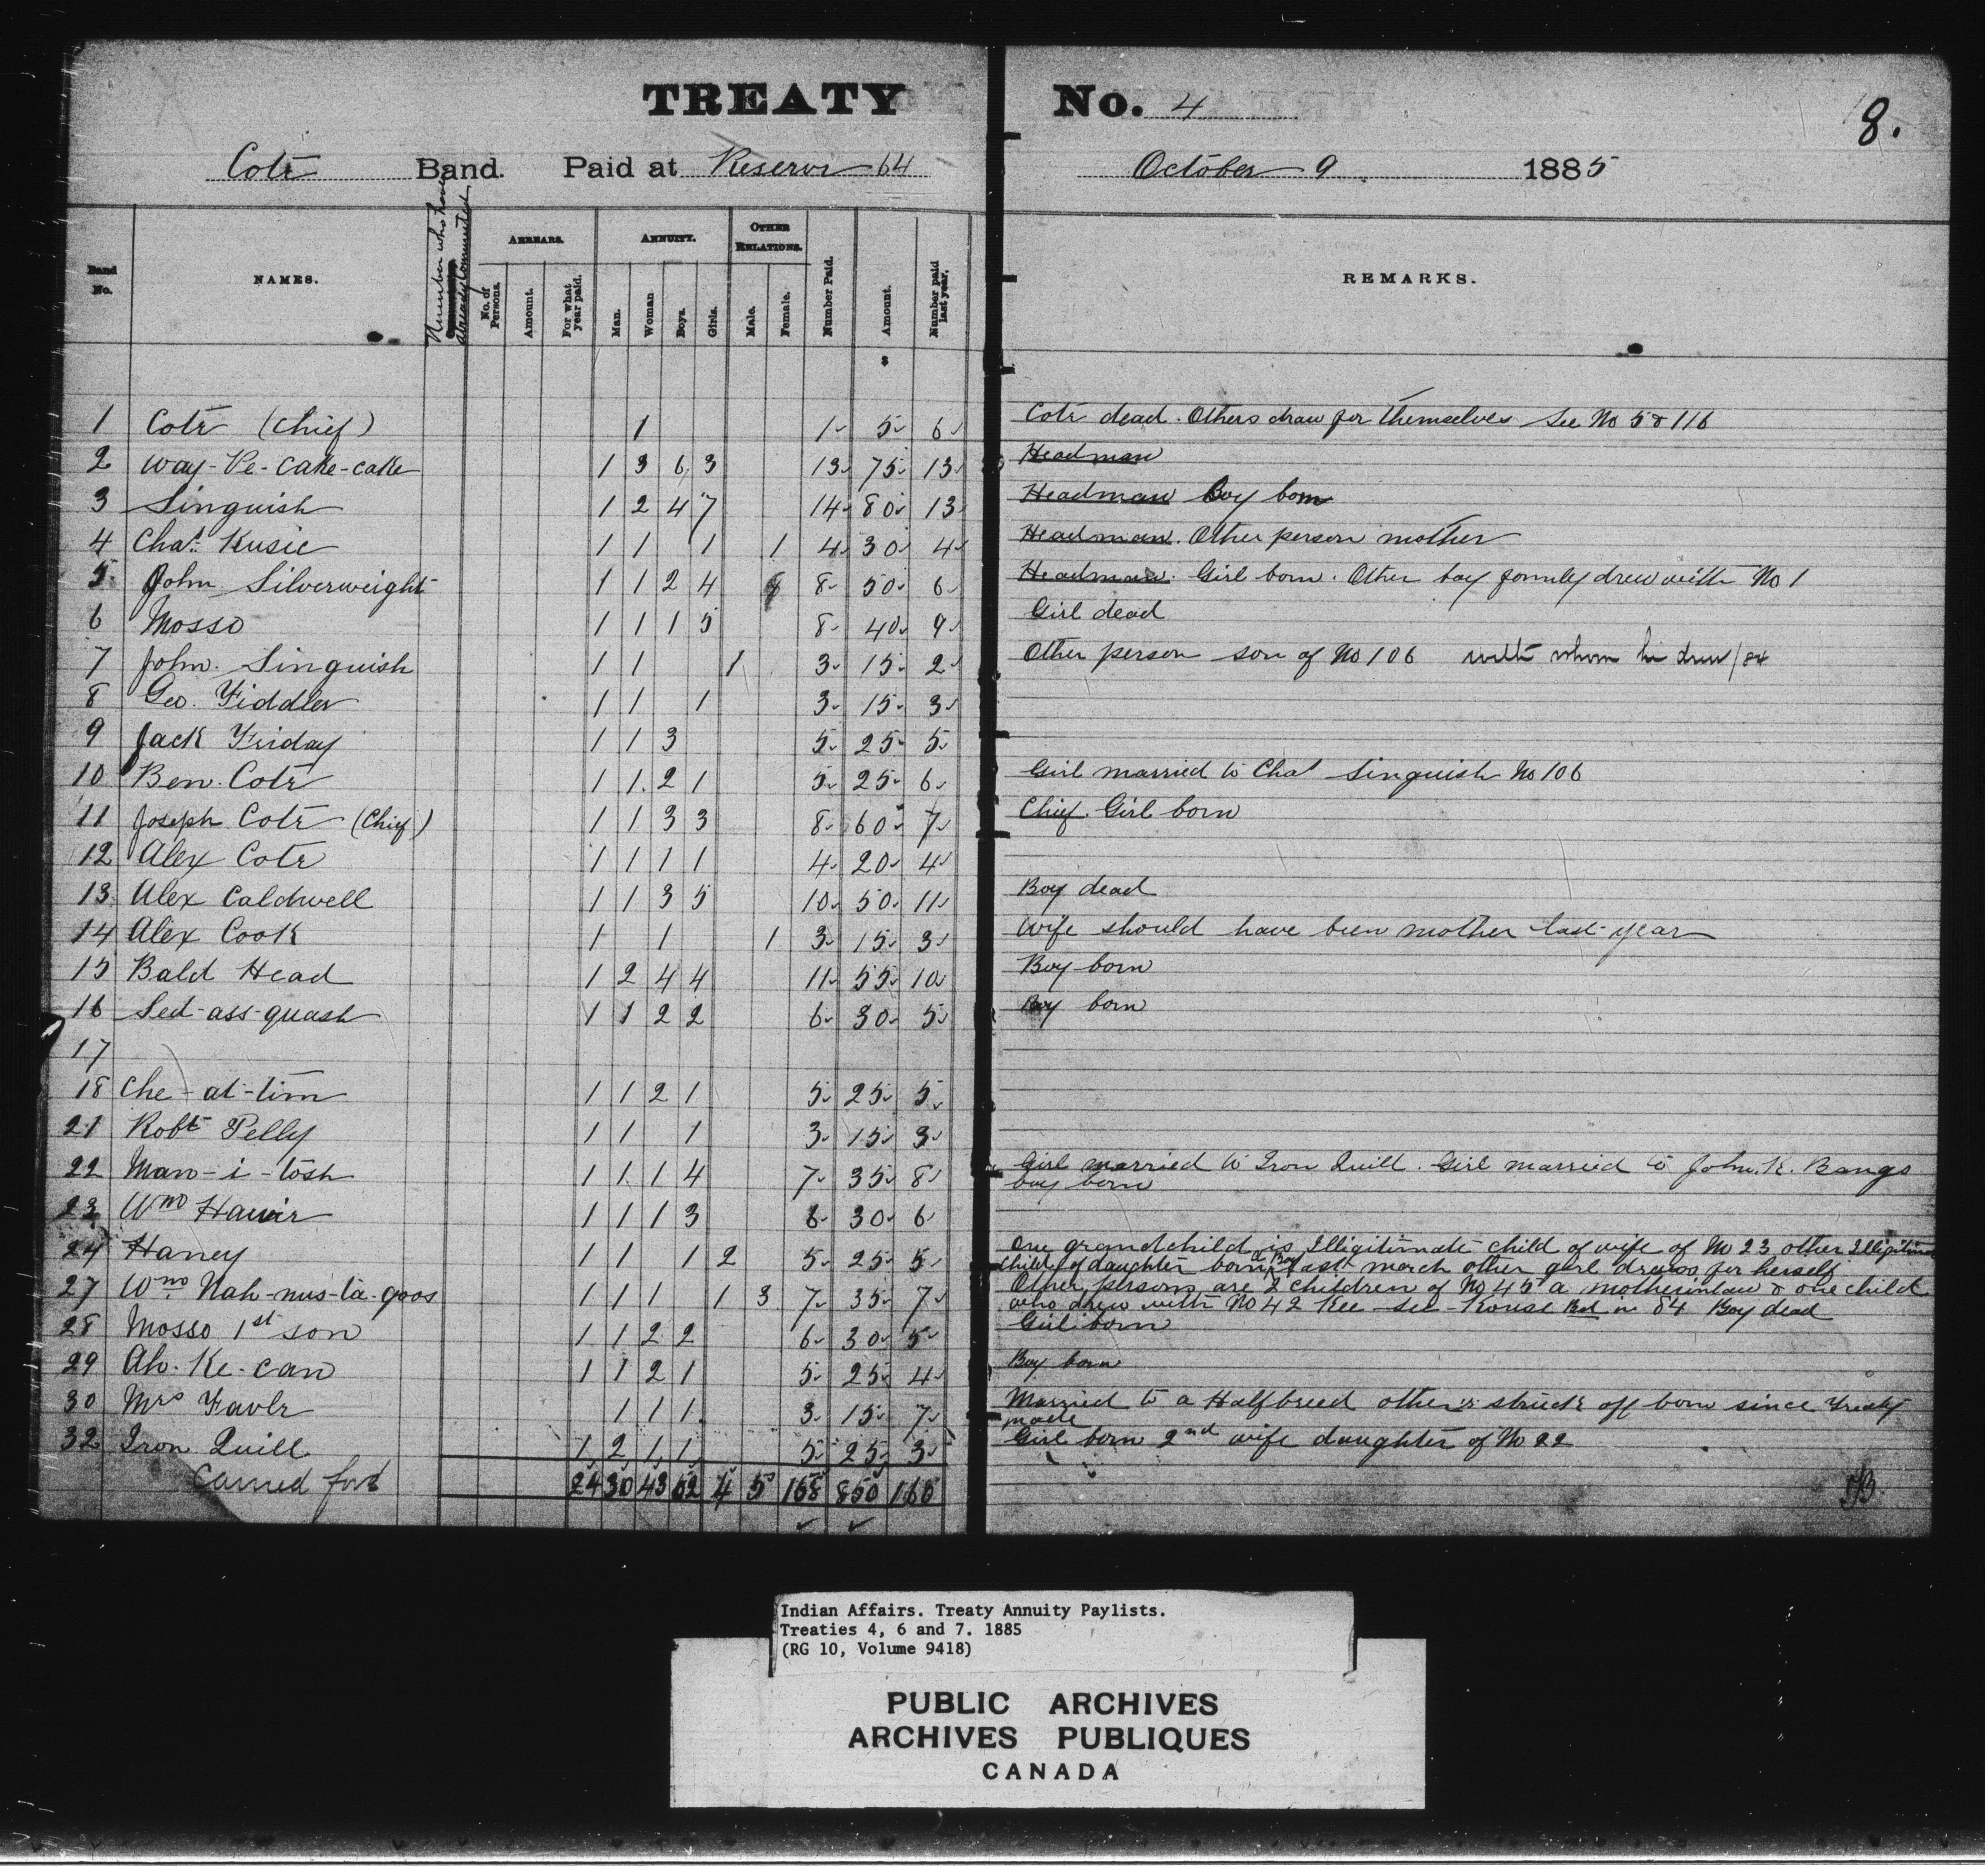 TREATY No. 4
8.
Cote Band. Paid at Reserve 64 October 9 1885
Band No. NAMES. Number who have already Commuted ARREARS. ANNUITY. OTHER RELATIONS. Number Paid. Amount. Number paid last year. REMARKS.
No. of Persons. Amount. For what year paid. Man. Woman Boys. Girls. Male. Female.
$
1 Cote (Chief) 1 1 5 6 Cote dead. Others draw for themselves See No 5 & 116
2 Way-Pe-cake-cake 1 3 6 3 13 75 13 Headman
3 Singuish 1 2 4 7 14 80 13 Headman Boy born
4 Chas. Kusic 1 1 1 1 4 30 4 Headman. Other person mother
5 John Silverweight 1 1 2 4 8 50 6 Headman. Girl born. Other boy formly drew with No 1
6 Mosso 1 1 1 5 8 40 9 Girl dead
7 John. Singuish 1 1 1 3 15 2 Other person son of No 106 with whom he drew /84
8 Geo. Fiddler 1 1 1 3 15 3
9 Jack Friday 1 1 3 5 25 5
10 Ben. Cote 1 1 2 1 5 25 6 Girl married to Chas Singuish No 106
11 Joseph Cote (Chief) 1 1 3 3 8 60 7 Chief. Girl born
12 Alex Cote 1 1 1 1 4 20 4
13 Alex Caldwell 1 1 3 5 10 50 11 Boy dead
14 Alex Cook 1 1 1 3 15 3 Wife should have been mother last year
15 Bald Head 1 2 4 4 11 55 10 Boy born
16 Sed-ass-quash 1 1 2 2 6 30 5 Boy born
17
18 Che-at-tim 1 1 2 1 5 25 5
21 Robt Pelly 1 1 1 3 15 3
22 Man-i-tosh 1 1 1 4 7 35 8 Girl married to Iron Quill. Girl married to John. K. Bangs
boy born
23 Wm 1 1 1 3 6 30 6
24 Haney 1 1 1 2 5 25 5 One grandchild is Illigitimate child of wife of No 23 other
child of daughter born last march other girl draws for herself
27 Wm Nah-nus-ta-goos 1 1 1 1 3 7 35 7 Other persons are 2 children of No 45 a motherinlaw & one child
who drew with No 42 Kee-see-Kouse Bd in 84 Boy dead
28 Mosso 1st son 1 1 2 2 6 30 5 Girl born
29 Ah-Ke-can 1 1 2 1 5 25 4 Boy born
30 Mrs Favle 1 1 1 3 15 7 Married to a Halfbreed others struck off born since Treaty
made
32 Iron Quill 1 2 1 1 5 25 3 Girl born 2nd wife daughter of No 22
Carried ford 24 30 43 62 4 5 168 850 166
Indian Affairs. Treaty Annuity Paylists.
Treaties 4, 6 and 7. 1885
(RG 10, Volume 9418)
PUBLIC ARCHIVES
ARCHIVES PUBLIQUES
CANADA